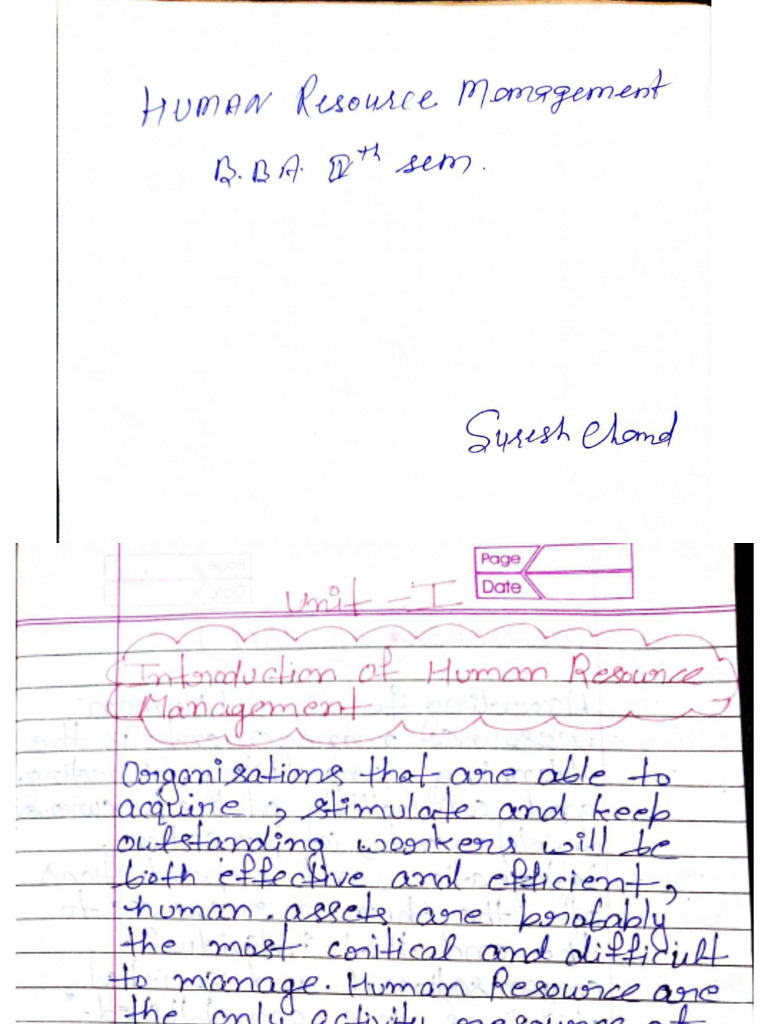 HUMAN Resource Management
B.B.A. IVth sem.
Suresh Chand
Page
Date
Unit - I
Introduction of Human Resource
Management
Organisations that are able to
acquire, stimulate and keep
outstanding workers will be
both effective and efficient,
human assets are probably
the most critical and difficult
to manage. Human Resource are
the only activity resource of